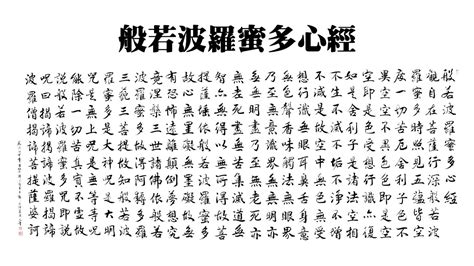 般若波羅蜜多心經
般若波羅蜜多心經
觀自在菩薩行深般若波
羅蜜多時照見五蘊皆空
度一切苦厄舍利子色不
異空空不異色色即是空
空即是色受想行識亦復
如是舍利子是諸法空相
不生不滅不垢不淨不增
不減是故空中無色無受
想行識無眼耳鼻舌身意
無色聲香味觸法無眼界
乃至無意識界無無明亦
無無明盡乃至無老死亦
無老死盡無苦集滅道無
智亦無得以無所得故菩
提薩埵依般若波羅蜜多
故心無罣礙無罣礙故無
有恐怖遠離顛倒夢想究
竟涅槃三世諸佛依般若
波羅蜜多故得阿耨多羅
三藐三菩提故知般若波
羅蜜多是大神呪是大明
呪是無上呪是無等等呪
能除一切苦真實不虛故
說般若波羅蜜多呪即說
呪曰揭諦揭諦波羅揭諦
波羅僧揭諦菩提薩婆訶